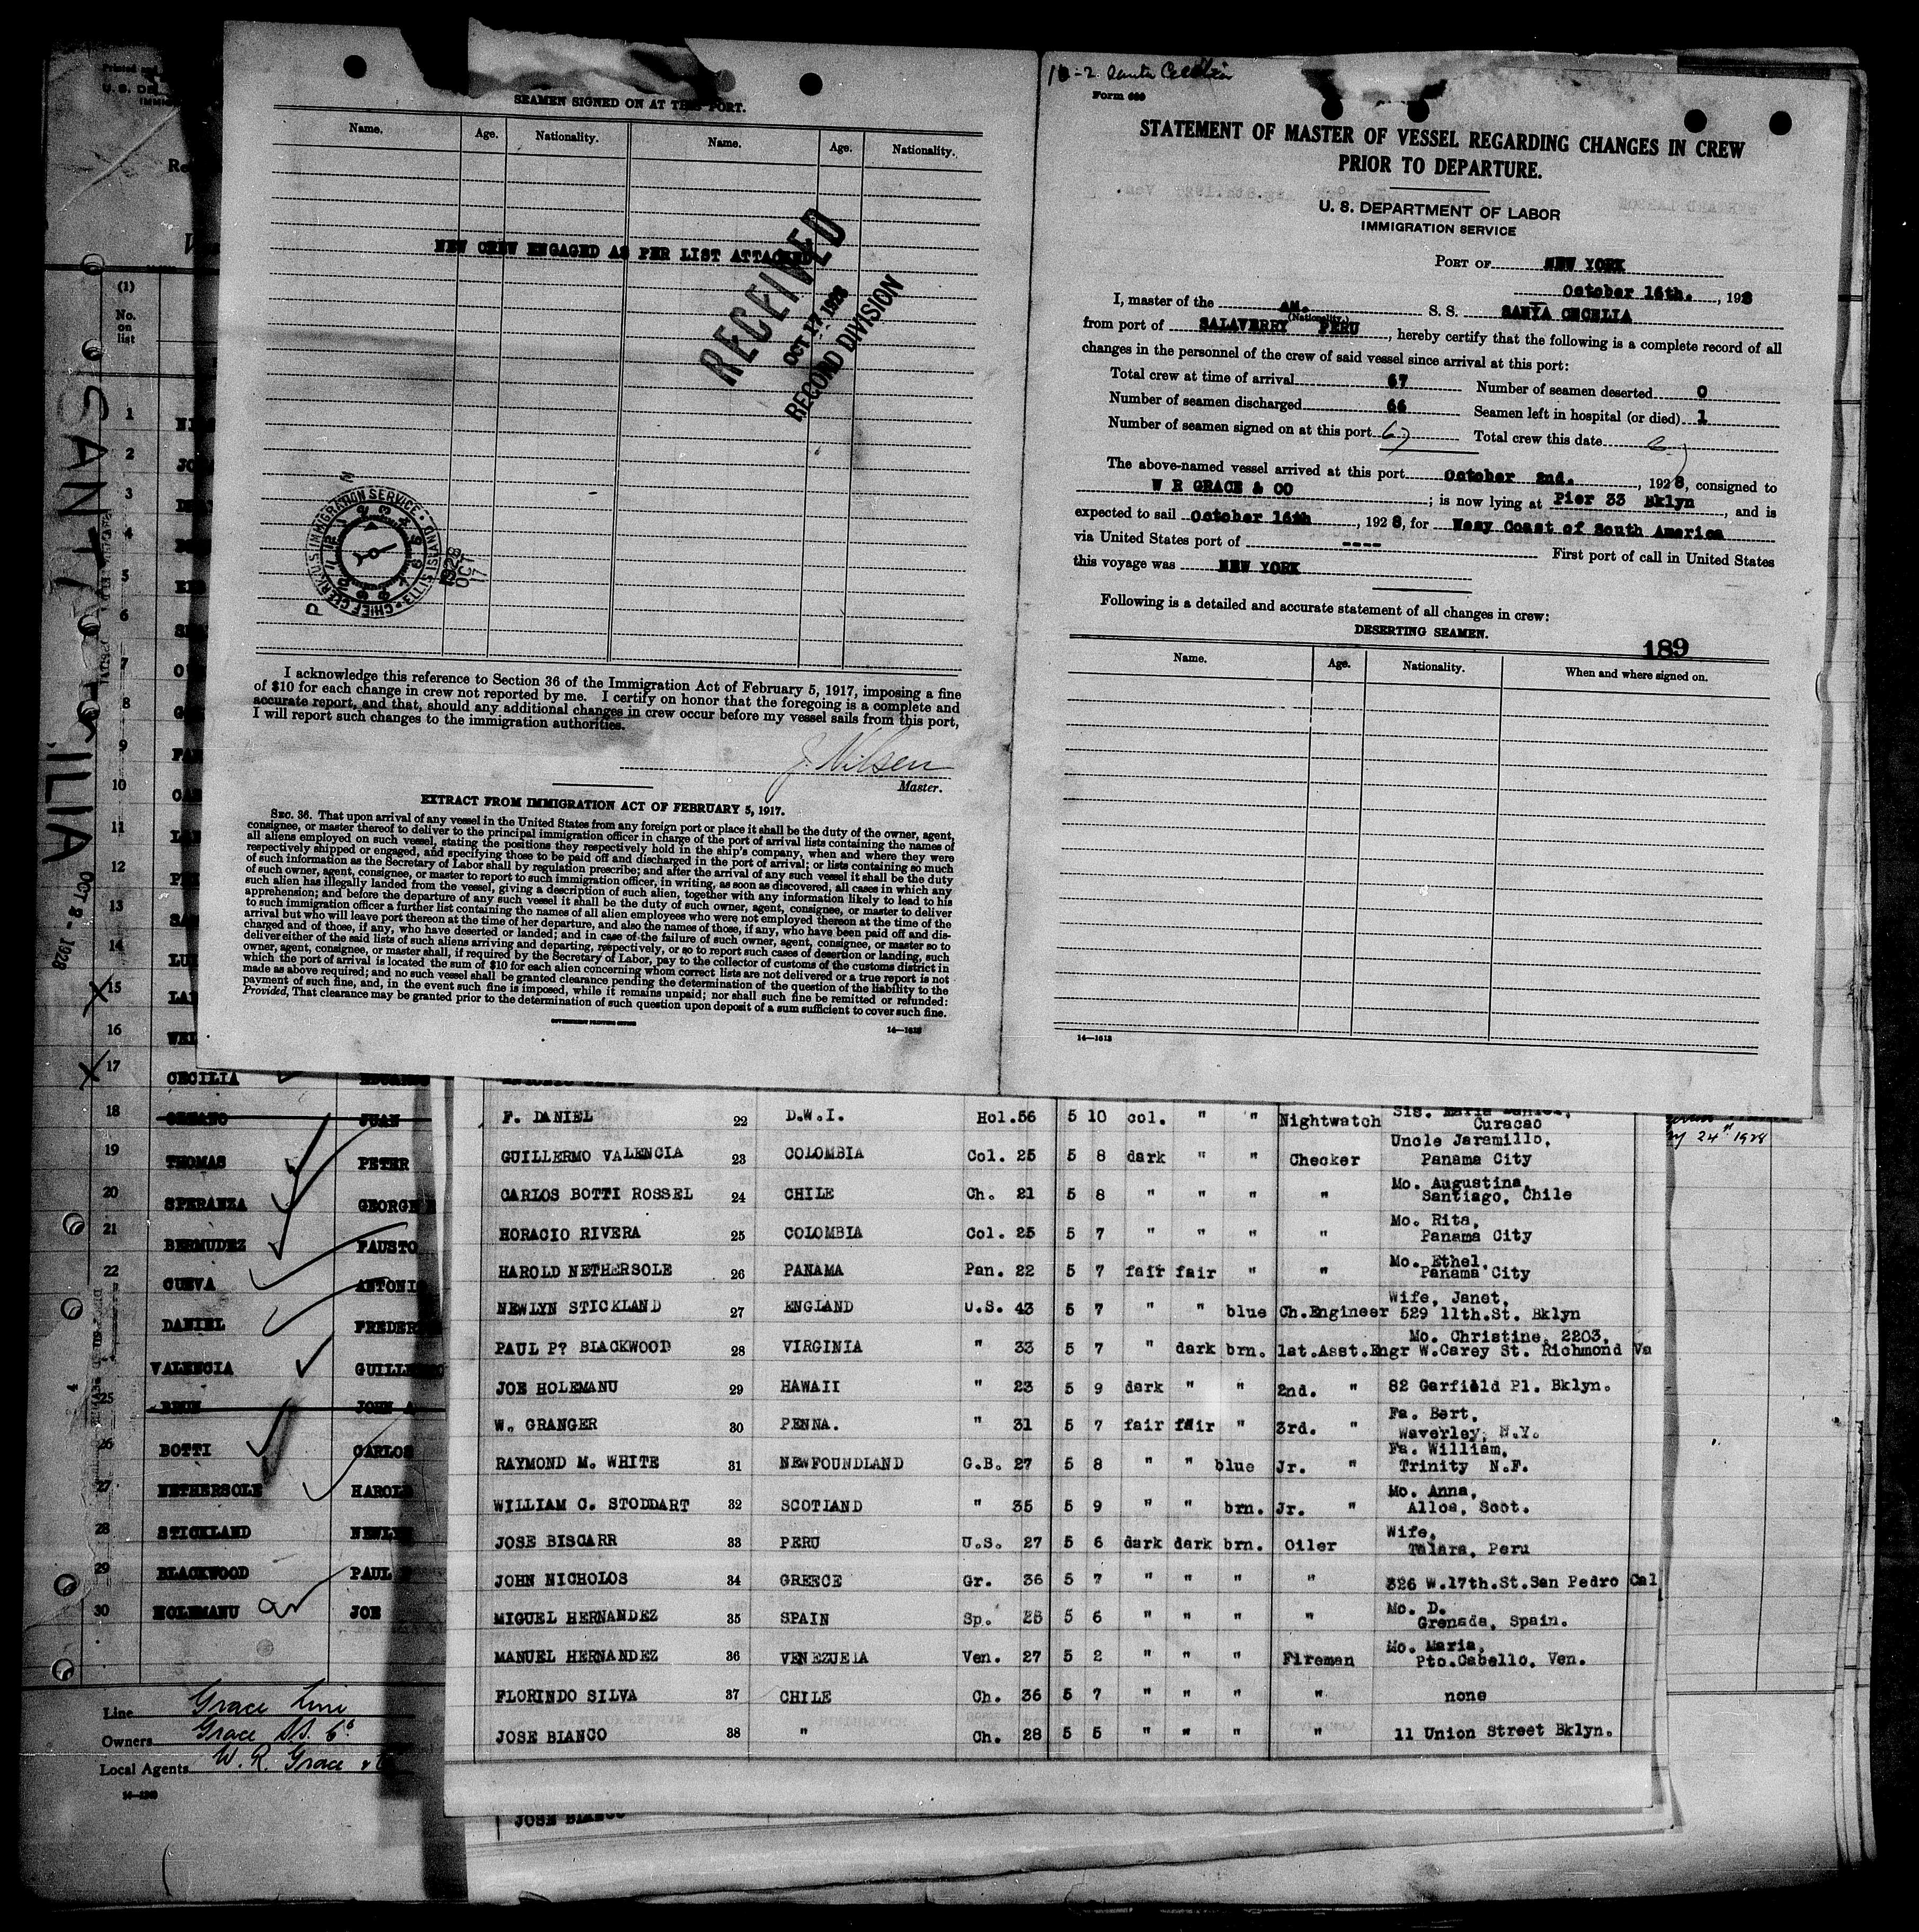 SEAMEN SIGNED ON AT THIS PORT.
Name. Age. Nationality. Name. Age. Nationality.
NEW CREW ENGAGED AS PER LIST ATTACHED
RECEIVED
OCT 17 1928
RECORD DIVISION
1928
OCT
17
I acknowledge this reference to Section 36 of the Immigration Act of February 5, 1917, imposing a fine
of $10 for each change in crew not reported by me. I certify on honor that the foregoing is a complete and
accurate report, and that, should any additional changes in crew occur before my vessel sails from this port,
I will report such changes to the immigration authorities.
J. Nilsen
Master.
EXTRACT FROM IMMIGRATION ACT OF FEBRUARY 5, 1917.
SEC. 36. That upon arrival of any vessel in the United States from any foreign port or place it shall be the duty of the owner, agent,
consignee, or master thereof to deliver to the principal immigration officer in charge of the port of arrival lists containing the names of
all aliens employed on such vessel, stating the positions they respectively hold in the ship's company, when and where they were
respectively shipped or engaged, and specifying those to be paid off and discharged in the port of arrival; or lists containing so much
of such information as the Secretary of Labor shall by regulation prescribe; and after the arrival of any such vessel it shall be the duty
of such owner, agent, consignee, or master to report to such immigration officer, in writing, as soon as discovered, all cases in which any
such alien has illegally landed from the vessel, giving a description of such alien, together with any information likely to lead to his
apprehension; and before the departure of any such vessel it shall be the duty of such owner, agent, consignee, or master to deliver
to such immigration officer a further list containing the names of all alien employees who were not employed thereon at the time of the
arrival but who will leave port thereon at the time of her departure, and also the names of those, if any, who have been paid off and dis-
charged and of those, if any, who have deserted or landed; and in case of the failure of such owner, agent, consignee, or master so to
deliver either of the said lists of such aliens arriving and departing, respectively, or so to report such cases of desertion or landing, such
owner, agent, consignee, or master shall, if required by the Secretary of Labor, pay to the collector of customs of the customs district in
which the port of arrival is located the sum of $10 for each alien concerning whom correct lists are not delivered or a true report is not
made as above required; and no such vessel shall be granted clearance pending the determination of the question of the liability to the
payment of such fine, and, in the event such fine is imposed, while it remains unpaid; nor shall such fine be remitted or refunded:
Provided, That clearance may be granted prior to the determination of such question upon deposit of a sum sufficient to cover such fine.
GOVERNMENT PRINTING OFFICE 14—1613
Form 689
STATEMENT OF MASTER OF VESSEL REGARDING CHANGES IN CREW
PRIOR TO DEPARTURE.
U. S. DEPARTMENT OF LABOR
IMMIGRATION SERVICE
PORT OF NEW YORK
October 16th. , 1928
I, master of the AM. S. S. SANTA CECELIA
(Nationality.)
from port of SALAVERRY PERU , hereby certify that the following is a complete record of all
changes in the personnel of the crew of said vessel since arrival at this port:
Total crew at time of arrival 67 Number of seamen deserted 0
Number of seamen discharged 66 Seamen left in hospital (or died) 1
Number of seamen signed on at this port 67 Total crew this date
The above-named vessel arrived at this port October 2nd. , 1928, consigned to
W R GRACE & CO ; is now lying at Pier 33 Bklyn , and is
expected to sail October 16th , 1928, for Wesy Coast of South America
via United States port of ---- First port of call in United States
this voyage was NEW YORK
Following is a detailed and accurate statement of all changes in crew:
DESERTING SEAMEN.
189
Name. Age. Nationality. When and where signed on.
14—1613
SANTA CECILIA
OCT 2 - 1928
(1)
No.
on
list
1
2
3
4
5
6
7
8
9
10
11
12
13
14
15
16
17 CECILIA
18 JUAN
19 THOMAS PETER
20 SPERANZA GEORGE
21 BERMUDEZ FAUSTO
22 CUEVA ANTONIO
DANIEL FREDER
VALENCIA GUILLERMO
25 BRUN JOHN A
26 BOTTI CARLOS
27 NETHERSOLE HAROLD
28 STICKLAND NEWLYN
29 BLACKWOOD PAUL P
30 HOLEMANU JOE
Line Grace Line
Owners Grace SS. Co.
Local Agents W. R. Grace & Co
F. DANIEL 22 D.W.I. Hol. 56 5 10 col. " " Nightwatch Curacao
GUILLERMO VALENCIA 23 COLOMBIA Col. 25 5 8 dark " " Checker Uncle Jaramillo, Panama City
CARLOS BOTTI ROSSEL 24 CHILE Ch. 21 5 8 " " " " Mo. Augustina, Santiago, Chile
HORACIO RIVERA 25 COLOMBIA Col. 25 5 7 " " " " Mo. Rita, Panama City
HAROLD NETHERSOLE 26 PANAMA Pan. 22 5 7 fair fair " " Mo. Ethel, Panama City
NEWLYN STICKLAND 27 ENGLAND U.S. 43 5 7 " " blue Ch.Engineer Wife, Janet, 529 11th.St. Bklyn
PAUL P? BLACKWOOD 28 VIRGINIA " 33 5 7 " dark brn. 1st.Asst.Engr Mo. Christine, 2203, W.Carey St. Richmond Va
JOE HOLEMANU 29 HAWAII " 23 5 9 dark " " 2nd. " 82 Garfield Pl. Bklyn.
W. GRANGER 30 PENNA. " 31 5 7 fair fair " 3rd. " Fa. Bert, Waverley, N.Y.
RAYMOND M. WHITE 31 NEWFOUNDLAND G.B. 27 5 8 " " blue Jr. " Fa. William, Trinity N.F.
WILLIAM C. STODDART 32 SCOTLAND " 35 5 9 " " brn. Jr. " Mo. Anna, Alloa, Scot.
JOSE BISCARR 33 PERU U.S. 27 5 6 dark dark brn. Oiler Wife, Talara, Peru
JOHN NICHOLOS 34 GREECE Gr. 36 5 7 " " " " 326 W.17th.St.San Pedro Cal
MIGUEL HERNANDEZ 35 SPAIN Sp. 25 5 6 " " " " Mo. D. Grenada, Spain.
MANUEL HERNANDEZ 36 VENEZUELA Ven. 27 5 2 " " " Fireman Mo. Maria, Pto.Cabello, Ven.
FLORINDO SILVA 37 CHILE Ch. 36 5 7 " " " " none
JOSE BIANCO 38 " Ch. 28 5 5 " " " " 11 Union Street Bklyn.
JOSE BIANCO
24th 1928